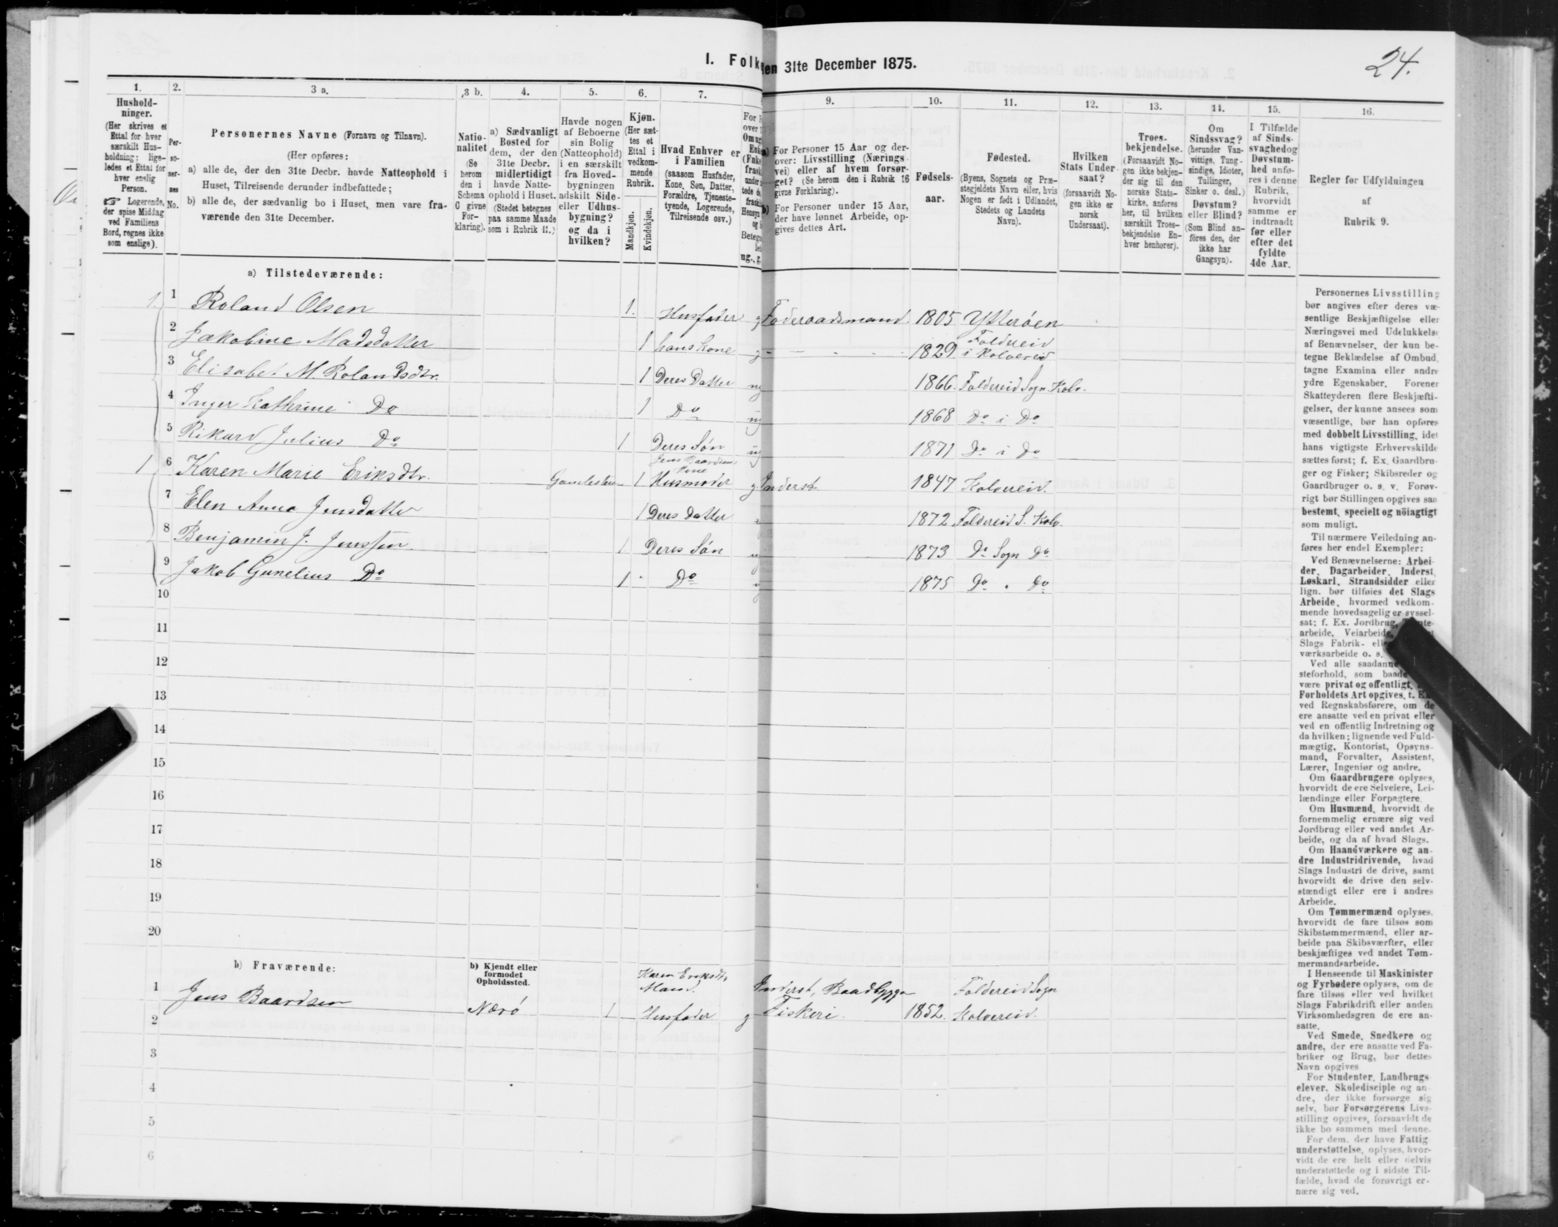 24.
I. Folk
en 31te December 1875.
1.
2.
3 a.
3 b.
4.
5.
6.
7.
9.
10.
11.
12.
13.
14.
15.
16.
Hushold-
ninger.
(Her skrives et
Ettal for hver
særskilt Hus-
holdning; lige-
ledes et Ettal for
hver enslig
Person.
☞ Logerende,
der spise Middag
ved Familiens
Bord, regnes ikke
som enslige).
Per-
so-
ner-
nes
No.
Personernes Navne (Fornavn og Tilnavn).
(Her opføres:
a) alle de, der den 31te Decbr. havde Natteophold i
Huset, Tilreisende derunder indbefattede;
b) alle de, der sædvanlig bo i Huset, men vare fra-
værende den 31te December.
Natio-
nalitet
(Se
herom
den i
Schema
C givne
For-
klaring).
a) Sædvanligt
Bosted for
dem, der den
31te Decbr.
midlertidigt
havde Natte-
ophold i Huset.
(Stedet betegnes
paa samme Maade
som i Rubrik 11.)
Havde nogen
af Beboerne
sin Bolig
(Natteophold)
i en særskilt
fra Hoved-
bygningen
adskilt Side-
eller Udhus-
bygning?
og da i
hvilken?
Kjøn.
(Her sæt-
tes et
Ettal i
vedkom-
mende
Rubrik.
Mandkjøn.
Kvindekjøn.
Hvad Enhver er
i Familien
(saasom Husfader,
Kone, Søn, Datter,
Forældre, Tjeneste-
tyende, Logerende,
Tilreisende osv.)
a) For Personer 15 Aar og der-
over: Livsstilling (Nærings-
vei) eller af hvem forsør-
get? (Se herom den i Rubrik 16
givne Forklaring).
b) For Personer under 15 Aar,
der have lønnet Arbeide, op-
gives dettes Art.
Fødsels-
aar.
Fødested.
(Byens, Sognets og Præ-
stegjeldets Navn eller, hvis
Nogen er født i Udlandet,
Stedets og Landets
Navn).
Hvilken
Stats Under-
saat?
(forsaavidt No-
gen ikke er
norsk
Undersaat).
Troes-
bekjendelse.
(Forsaavidt No-
gen ikke bekjen-
der sig til den
norske Stats-
kirke, anføres
her, til hvilken
særskilt Troes-
bekjendelse En-
hver henhører).
Om
Sindssvag?
(herunder Van-
vittige, Tung-
sindige, Idioter,
Tullinger,
Sinker o. desl.)
Døvstum?
eller Blind?
(Som Blind an-
føres den, der
ikke har
Gangsyn).
I Tilfælde
af Sinds-
svaghed og
Døvstum-
hed anfø-
res i denne
Rubrik,
hvorvidt
samme er
indtraadt
før eller
efter det
fyldte
4de Aar.
Regler før Udfyldningen
af
Rubrik 9.
a) Tilstedeværende:
1. 1 Roland Olsen 1. Husfader g Foderaadsmand 1805 Ytterøen
2 Jakobine Madsdatter 1 hans Kone g 1829. Foldereid
i Kolvereid
3 Elisabet M. Rolandsdtr. 1 Deres Datter ug 1866. Foldereid Sogn Kolv.
4 Inger Kathrine Do 1 Do ug 1868 Do i Do
5 Rikard Julius Do 1 Deres Søn ug 1871 Do i Do
1 6 Karen Marie Eriksdtr. 1 Jens Baardsens
Kone
Husmoder g Inderst. 1847 Kolvereid.
7 Elen Anna Jensdatter 1 Deres Datter 1872 Foldereid S. Kolv.
8 Benjamin J. Jenssen 1 Deres Søn 1873 Do Sogn Do
9 Jakob Gunelius Do 1 Do 1875 Do Do
10
11
12
13
14
15
16
17
18
19
20
b) Fraværende:
b) Kjendt eller
formodet
Opholdssted.
1 Jens Baardsen Nærö 1 Karen Eriksdtr.
Mand.
Husfader g Inderst, Baadbygger
Fiskeri. 1852. Foldereid Sogn
Kolvereid.
2
3
4
5
6
Personernes Livsstilling
bør angives efter deres væ-
sentlige Beskjæftigelse eller
Næringsvei med Udelukkelse
af Benævnelser, der kun be-
tegne Beklædelse af Ombud,
tagne Examina eller andre
ydre Egenskaber. Forener
Skatteyderen flere Beskjæfti-
gelser, der kunne ansees som
væsentlige, bør han opføres
med dobbelt Livsstilling, idet
hans vigtigste Erhvervskilde
sættes først; f. Ex. Gaardbru-
ger og Fisker; Skibsreder og
Gaardbruger o. s. v. Forøv-
rigt bør Stillingen opgives saa
bestemt, specielt og nöiagtigt
som muligt.
Til nærmere Veiledning an-
føres her endel Exempler:
Ved Benævnelserne: Arbei-
der, Dagarbeider, Inderst,
Løskarl, Strandsidder eller
lign. bør tilføies det Slags
Arbeide, hvormed vedkom-
mende hovedsagelig er syssel-
sat; f. Ex. Jordbrug,
arbeide, Veiarbeide,
Slags Fabrik-
værksarbeide o. s.
Ved alle saadanne
steforhold, som baade
være privat og offentligt,
Forholdets Art opgives, t. Ex.
ved Regnskabsførere, om de
ere ansatte ved en privat eller
ved en offentlig Indretning og
da hvilken; lignende ved Fuld-
mægtig, Kontorist, Opsyns-
mand, Forvalter, Assistent,
Lærer, Ingeniør og andre.
Om Gaardbrugere oplyses,
hvorvidt de ere Selveiere, Lei-
lændinge eller Forpagtere.
Om Husmænd, hvorvidt de
fornemmelig ernære sig ved
Jordbrug eller ved andet Ar-
beide, og da af hvad Slags.
Om Haandværkere og an-
dre Industridrivende, hvad
Slags Industri de drive, samt
hvorvidt de drive den selv-
stændigt eller ere i andres
Arbeide.
Om Tømmermænd oplyses,
hvorvidt de fare tilsøs som
Skibstømmermænd, eller ar-
beide paa Skibsværfter, eller
beskjæftiges ved andet Tøm-
mermandsarbeide.
I Henseende til Maskinister
og Fyrbødere oplyses, om de
fare tilsøs eller ved hvilket
Slags Fabrikdrift eller anden
Virksomhedsgren de ere an-
satte.
Ved Smede, Snedkere og
andre, der ere ansatte ved Fa-
briker og Brug, bør dettes
Navn opgives
For Studenter, Landbrugs-
elever, Skoledisciple og an-
dre, der ikke forsørge sig
selv, bør Forsørgerens Livs-
stilling opgives, forsaavidt de
ikke bo sammen med denne.
For dem, der have Fattig-
understøttelse, oplyses, hvor-
vidt de ere helt eller delvis
understøttede og i sidste Til-
fælde, hvad de forøvrigt er-
nære sig ved.